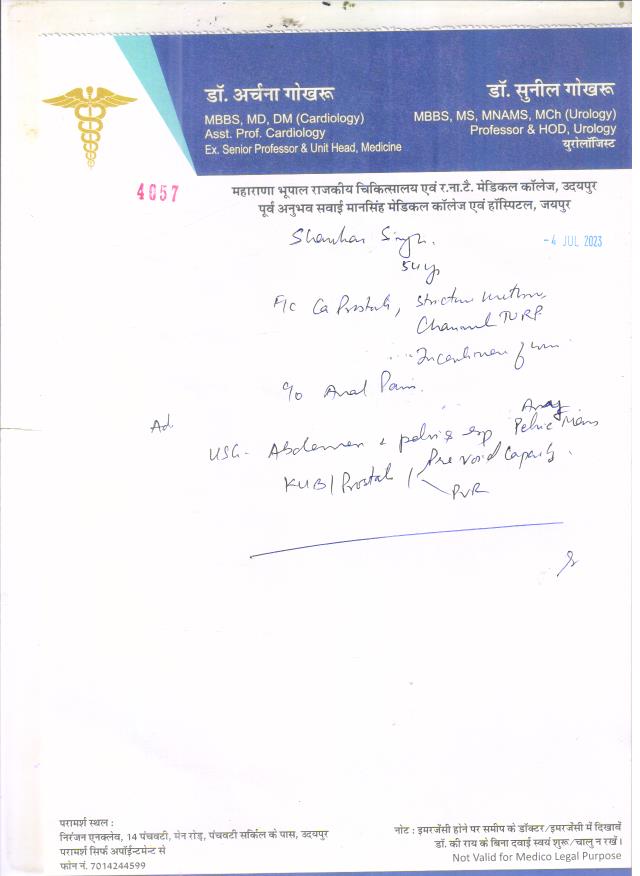 डॉ. अर्चना गोखरू
MBBS, MD, DM (Cardiology)
Asst. Prof. Cardiology
Ex. Senior Professor & Unit Head, Medicine
डॉ. सुनील गोखरू
MBBS, MS, MNAMS, MCh (Urology)
Professor & HOD, Urology
युरोलॉजिस्ट
4057
महाराणा भूपाल राजकीय चिकित्सालय एवं र.ना.टै. मेडिकल कॉलेज, उदयपुर
पूर्व अनुभव सवाई मानसिंह मेडिकल कॉलेज एवं हॉस्पिटल, जयपुर
Shankar Singh.
-4 JUL 2023
54 y
Ca Prostate, Stricture urethra,
Channel TURP.
Incontinence of urine
c/o Anal Pain.
Ad.
Any
USG - Abdomen & pelvis esp Pelvic Mass
KUB/Prostate/ Pre void Capacity.
PVR
परामर्श स्थल :
निरंजन एनक्लेव, 14 पंचवटी, मेन रोड़, पंचवटी सर्किल के पास, उदयपुर
परामर्श सिर्फ अपॉईन्टमेन्ट से
फोन नं. 7014244599
नोट : इमरजेंसी होने पर समीप के डॉक्टर/इमरजेंसी में दिखावें
डॉ. की राय के बिना दवाई स्वयं शुरू/चालु न रखें।
Not Valid for Medico Legal Purpose